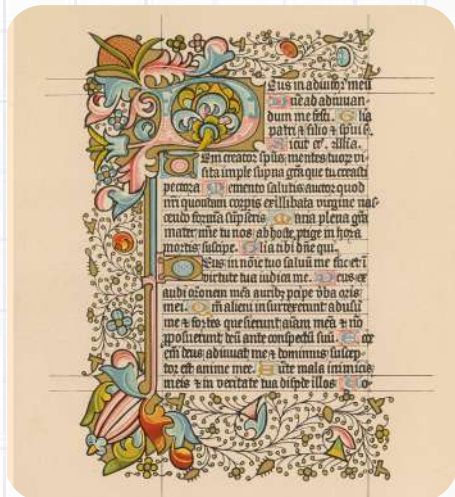 Deus in adiutor' meū
Dñe ad adiuuan-
dum me festi. Glia
patri & filio & spui s.
Sicut er'. Allia.
Veni creator spūs mentes tuor vi
sita imple supna grā que tu creasti
pectora Memento salutis auctor quod
nri quondam corpis ex illibata virgine nas-
cendo formā sūpseris Maria plena grā
mater mie tu nos ab hoste ptige in hora
mortis suscipe. Glia tibi dñe qui.
Deus in nōie tuo saluū me fac et ī
virtute tua iudica me. Deus ex
audi orōnem meā aurib; pcipe vba oris
mei. Qm alieni insurrexerunt adusū
me & fortes quesierunt aīam meā & nō
pposuerunt deū ante conspectū suū. Ecce
em deus adiuuat me & dominus suscep-
tor est anime mee. Auerte mala inimicis
meis & in veritate tua dispde illos Vo-